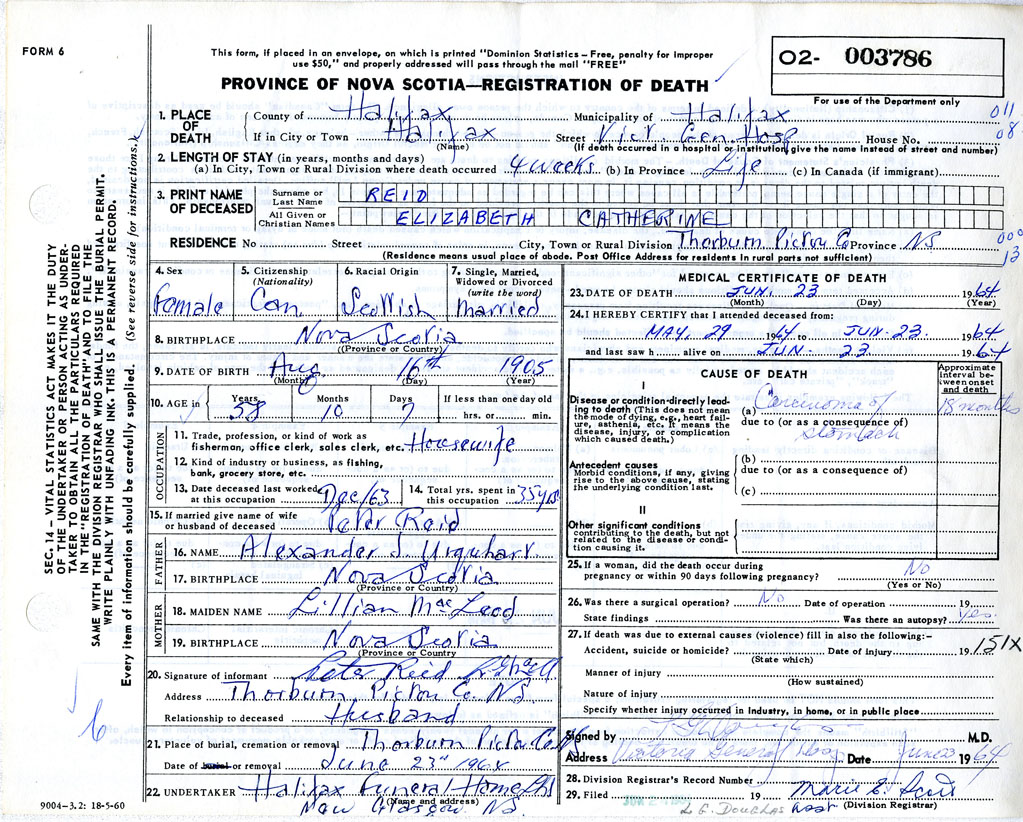 FORM 6
This form, if placed in an envelope, on which is printed "Dominion Statistics – Free, penalty for improper
use $50," and properly addressed will pass through the mail "FREE"
PROVINCE OF NOVA SCOTIA—REGISTRATION OF DEATH
02- 003786
For use of the Department only
011
08
1. PLACE OF DEATH
County of Halifax Municipality of Halifax
If in City or Town Halifax Street Vict Gen Hosp House No.
(Name) (If death occurred in a hospital or institution, give the name instead of street and number)
2. LENGTH OF STAY (in years, months and days)
(a) In City, Town or Rural Division where death occurred 4 weeks (b) In Province Life (c) In Canada (if immigrant)
3. PRINT NAME OF DECEASED
Surname or Last Name REID
All Given or Christian Names ELIZABETH CATHERINE
RESIDENCE No Street City, Town or Rural Division Thorburn Pictou Co Province NS
(Residence means usual place of abode. Post Office Address for residents in rural parts not sufficient)
000
13
4. Sex Female
5. Citizenship (Nationality) Can
6. Racial Origin Scottish
7. Single, Married, Widowed or Divorced (write the word) Married
8. BIRTHPLACE Nova Scotia
(Province or Country)
9. DATE OF BIRTH Aug 16th 1905
(Month) (Day) (Year)
10. AGE in Years 58 Months 10 Days 7 If less than one day old hrs. or min.
OCCUPATION
11. Trade, profession, or kind of work as
fisherman, office clerk, sales clerk, etc. Housewife
12. Kind of industry or business, as fishing,
bank, grocery store, etc.
13. Date deceased last worked at this occupation Dec/63
14. Total yrs. spent in this occupation 35 yrs
15. If married give name of wife or husband of deceased Peter Reid
FATHER
16. NAME Alexander J. Urquhart
17. BIRTHPLACE Nova Scotia
(Province or Country)
MOTHER
18. MAIDEN NAME Lillian MacLeod
19. BIRTHPLACE Nova Scotia
(Province or Country
20. Signature of informant Peter Reid
Address Thorburn Pictou Co NS
Relationship to deceased Husband
21. Place of burial, cremation or removal Thorburn Pictou Co NS
Date of burial or removal June 23rd 1964
22. UNDERTAKER Halifax Funeral Home
(Name and address)
New Glasgow NS
9004–3.2: 18-5-60
MEDICAL CERTIFICATE OF DEATH
23. DATE OF DEATH JUN. 23 1964
(Month) (Day) (Year)
24. I HEREBY CERTIFY that I attended deceased from:
MAY, 29 1964 JUN. 23. 1964
and last saw h alive on JUN. 23 1964
CAUSE OF DEATH
Approximate interval between onset and death
I
Disease or condition directly leading to death (This does not mean the mode of dying, e.g., heart failure, asthenia, etc. It means the disease, injury, or complication which caused death.)
(a) Carcinoma of
due to (or as a consequence of)
stomach
18 months
Antecedent causes
Morbid conditions, if any, giving rise to the above cause, stating the underlying condition last.
(b)
due to (or as a consequence of)
(c)
II
Other significant conditions
contributing to the death, but not related to the disease or condition causing it.
25. If a woman, did the death occur during
pregnancy or within 90 days following pregnancy? No
(Yes or No)
26. Was there a surgical operation? No Date of operation 19
State findings Was there an autopsy? Yes
27. If death was due to external causes (violence) fill in also the following:–
Accident, suicide or homicide? Date of injury 19
(State which)
151X
Manner of injury
(How sustained)
Nature of injury
Specify whether injury occurred in industry, in home, or in public place
Signed by M.D.
Address Victoria General Hosp Date June 23 1964
28. Division Registrar's Record Number
29. Filed 19 Marie E.
L E. DOUGLAS Asst (Division Registrar)
SEC. 14 – VITAL STATISTICS ACT MAKES IT THE DUTY
OF THE UNDERTAKER OR PERSON ACTING AS UNDER-
TAKER TO OBTAIN ALL THE PARTICULARS REQUIRED
IN THE "REGISTRATION OF DEATH" AND TO FILE THE
SAME WITH THE DIVISION REGISTRAR WHO SHALL ISSUE THE BURIAL PERMIT.
WRITE PLAINLY WITH UNFADING INK. THIS IS A PERMANENT RECORD.
Every item of information should be carefully supplied. (See reverse side for instructions.)
6